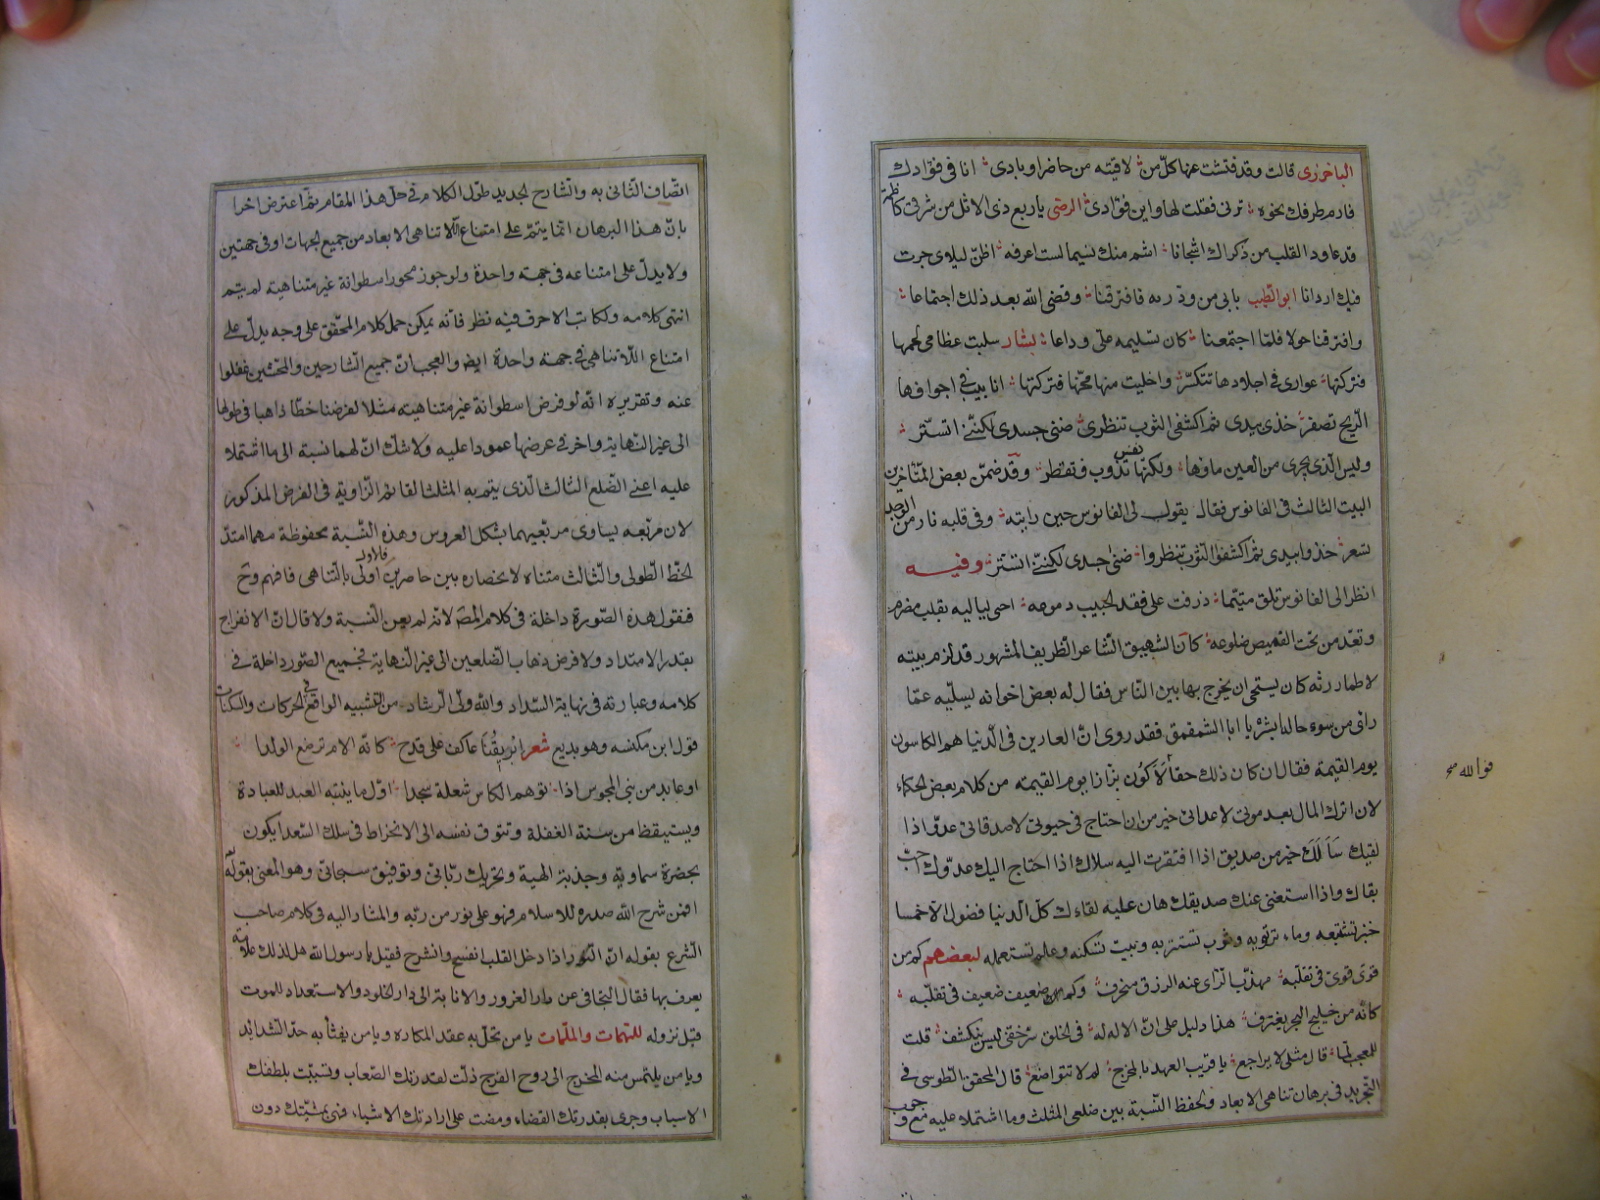 الباخرزى قالت وقد فتشت عنها كلّ من لاقيته من حاضر او بادى انا فى فؤادك
فارم طرفك نحوه ترنى فقلت لها واين فؤادى الرضى يا ربع ذى الاثل من شرقى كاظمة
قد عاود القلب من ذكراك اشجانا اشم منك نسيما لست اعرفه اظنّ ليلاى جرت
فيك اردانا ابو الطيب بابى من وددته فافترقنا وقضى الله بعد ذلك اجتماعا
وافترقنا حولا فلمّا اجتمعنا كان تسليمه علىّ وداعا لبشار سلبت عظامى لحمها
فتركتها عوارى فى اجلادها تتكسّر واخليت منها مخّها فتركتها انابيب فى اجوافها
الريح تصفر خذى بيدى ثم اكشفى الثوب تنظرى ضنى جسدى لكننى اتستر
وليس الّذى يجرى من العين ماؤها ولكنّها نفس تذوب فتقطر وقد ضمّن بعض المتاخرين
البيت الثالث فى الفانوس فقال يقول لى الفانوس حين رايته وفى قلبه نار من الوجد
تسعر خذوا بيدى ثم اكشفوا الثوب تنظروا ضنى جسدى لكننى اتستر وفيه
انظر الى الفانوس تلق متيّما ذرفت على فقد الحبيب دموعه احى لياليه بقلب مضرم
وتعدّ من تحت القميص ضلوعه كان الشهيق الشاعر الظريف المشهور قد لزم بيته
لاطمار رثه كان يستحى ان يخرج بها بين الناس فقال له بعض اخوانه يسليه عمّا
راى من سوء حاله ابشر يا ابا الشمقمق فقد روى انّ العارين فى الدنيا هم الكاسون
يوم القيمة فقال ان كان ذلك حقا لاكونن بزازا يوم القيمة من كلام بعض الحكماء
فوالله صح
لان اترك المال بعد موتى لاعدائى خير من ان احتاج فى حيوتى لاصدقائى عدوّ اذا
لقيك سالك خير من صديق اذا افتقرت اليه سلاك اذا احتاج اليك عدوّك احبّ
بقاك واذا استغنى عنك صديقك هان عليه لقاءك كل الدنيا فضول الا خمسا
خبز تشبعه وماء ترتوبه وثوب تستتر به وبيت تسكنه وعلم تستعمله لبعضهم كم من
قوى قوى فى تقلّبه مهذّب الراى عنه الرزق منحرف وكم ضعيف ضعيف فى تقلّبه
كانّه من خليج البحر يغترف هذا دليل على انّ الاله له فى الخلق سرّ خفى ليس ينكشف قلت
للمعجب لمّا قال مثلى لا يراجع يا قريب العهد بالمخرج لم لا تتواضع قال المحقق الطوسى فى
التجريد فى برهان تناهى الابعاد ولحفظ النسبة بين ضلعى المثلث وما اشتملا عليه مع وجوب
اتصاف الثانى به والشارح الجديد طول الكلام فى حلّ هذا المقام ثم اعترض اخرا
بان هذا البرهان انما يتمّ على امتناع اللاتناهى الابعاد من جميع الجهات او فى جهتين
ولا يدلّ على امتناعه فى جهة واحدة ولو جوز محور اسطوانة غير متناهية لم يتم
انتهى كلامه ولكاتب الاحرف فيه نظر فانه يمكن حمل كلام المحقق على وجه يدلّ على
امتناع اللاتناهى فى جهة واحدة ايض والعجب انّ جميع الشارحين والمحشين غفلوا
عنه وتقريره انّه لو فرض اسطوانة غير متناهية مثلا لفرضنا خطّا ذاهبا فى طولها
الى غير النهاية واخر فى عرضها عمودا عليه ولا شك انّ لهما نسبة الى ما اشتملا
عليه اعنى الضلع الثالث الّذى يتم به المثلث القائم الزاوية فى الفرض المذكور
لان مربّعه يساوى مربّعيهما بشكل العروس وهذه النسبة محفوظة مهما امتدّ
الخطّ الطولى والثالث متناه لانحصاره بين حاصرين فالاول اولى بالتناهى فافهم وح
فنقول هذه الصورة داخلة فى كلام المصّ لانه لم يعين النسبة ولا قال انّ الانفراج
بقدر الامتداد ولا فرض ذهاب الضلعين الى غير النهاية فجميع الصور داخلة فى
كلامه وعبارته فى نهاية السداد والله ولىّ الرشاد من التشبيه الواقع فى الحركات والسكنات
قول ابن مكنسه وهو بديع شعر ابريقنا عاكف على قدح كانّه الام ترضع الولدا
او عابد من بنى المجوس اذا توهم الكاس شعلة سجدا اوّل ما ينتبه العبد للعبادة
ويستيقظ من سنة الغفلة وتتوق نفسه الى الانخراط فى سلك السعدا يكون
بخطرة سماوية وجذبة الهية وتحريك ربّانى وتوفيق سبحانى وهو المعنى بقوله
افمن شرح الله صدره للاسلام فهو على نور من ربه والمشار اليه فى كلام صاحب
الشرع بقوله انّ النور اذا دخل القلب انفسح وانشرح فقيل يا رسول الله هل لذلك علامة
يعرف بها فقال التجافى عن دار الغرور والانابة الى دار الخلود والاستعداد للموت
قبل نزوله للمهمات والملمات يا من تحلّ به عقد المكاره ويا من يفثأ به حدّ الشدائد
ويا من يلتمس منه المخرج الى روح الفرج ذلّت لقدرتك الصعاب وتسبّبت بلطفك
الاسباب وجرى بقدرتك القضاء ومضت على ارادتك الاشياء فهى بمشيّتك دون